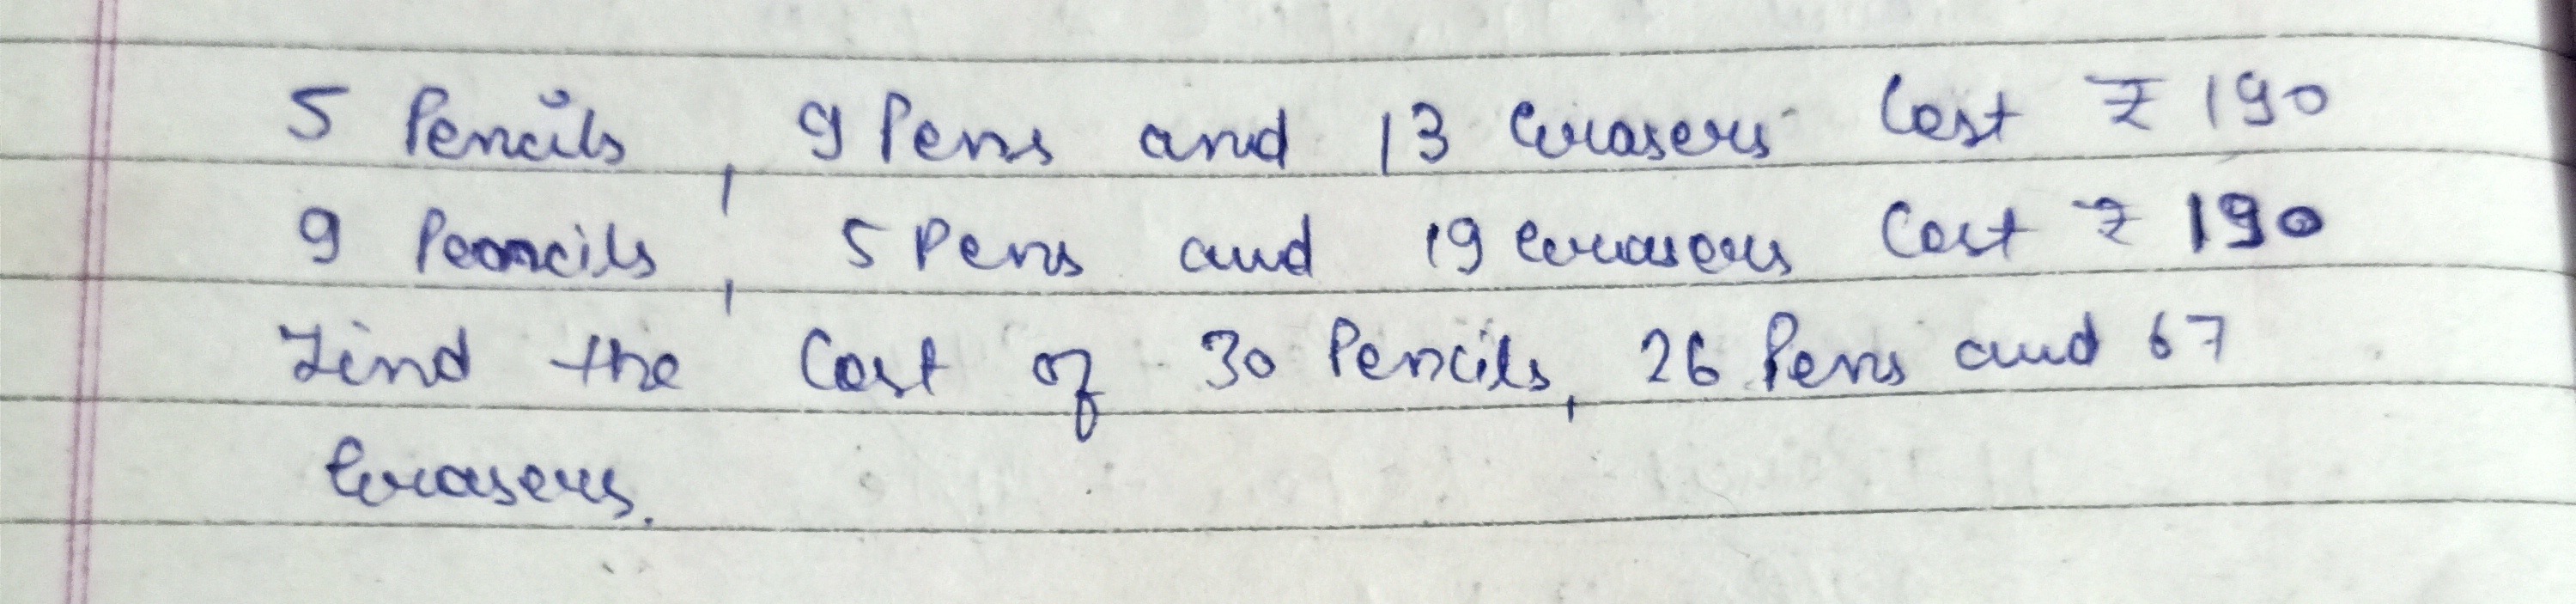 5 Pencils, 9 Pens and 13 Erasers Cost ₹ 190
9 Pencils, 5 Pens and 19 Erasers Cost ₹ 190
Find the Cost of 30 Pencils, 26 Pens and 67
Erasers.